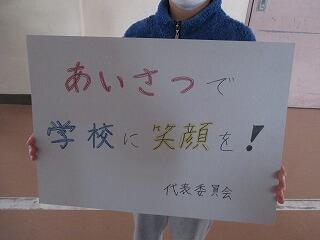 あいさつで
学校に笑顔を!
代表委員会